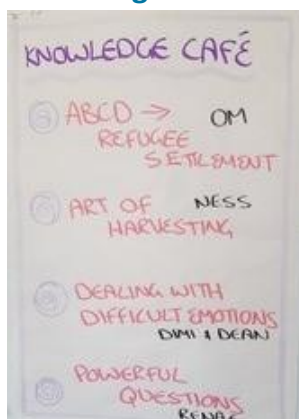 KNOWLEDGE CAFÉ
ABCD → OM
REFUGEE
SETTLEMENT
ART OF NESS
HARVESTING
DEALING WITH
DIFFICULT EMOTIONS
DIMI & DEAN
POWERFUL
QUESTIONS